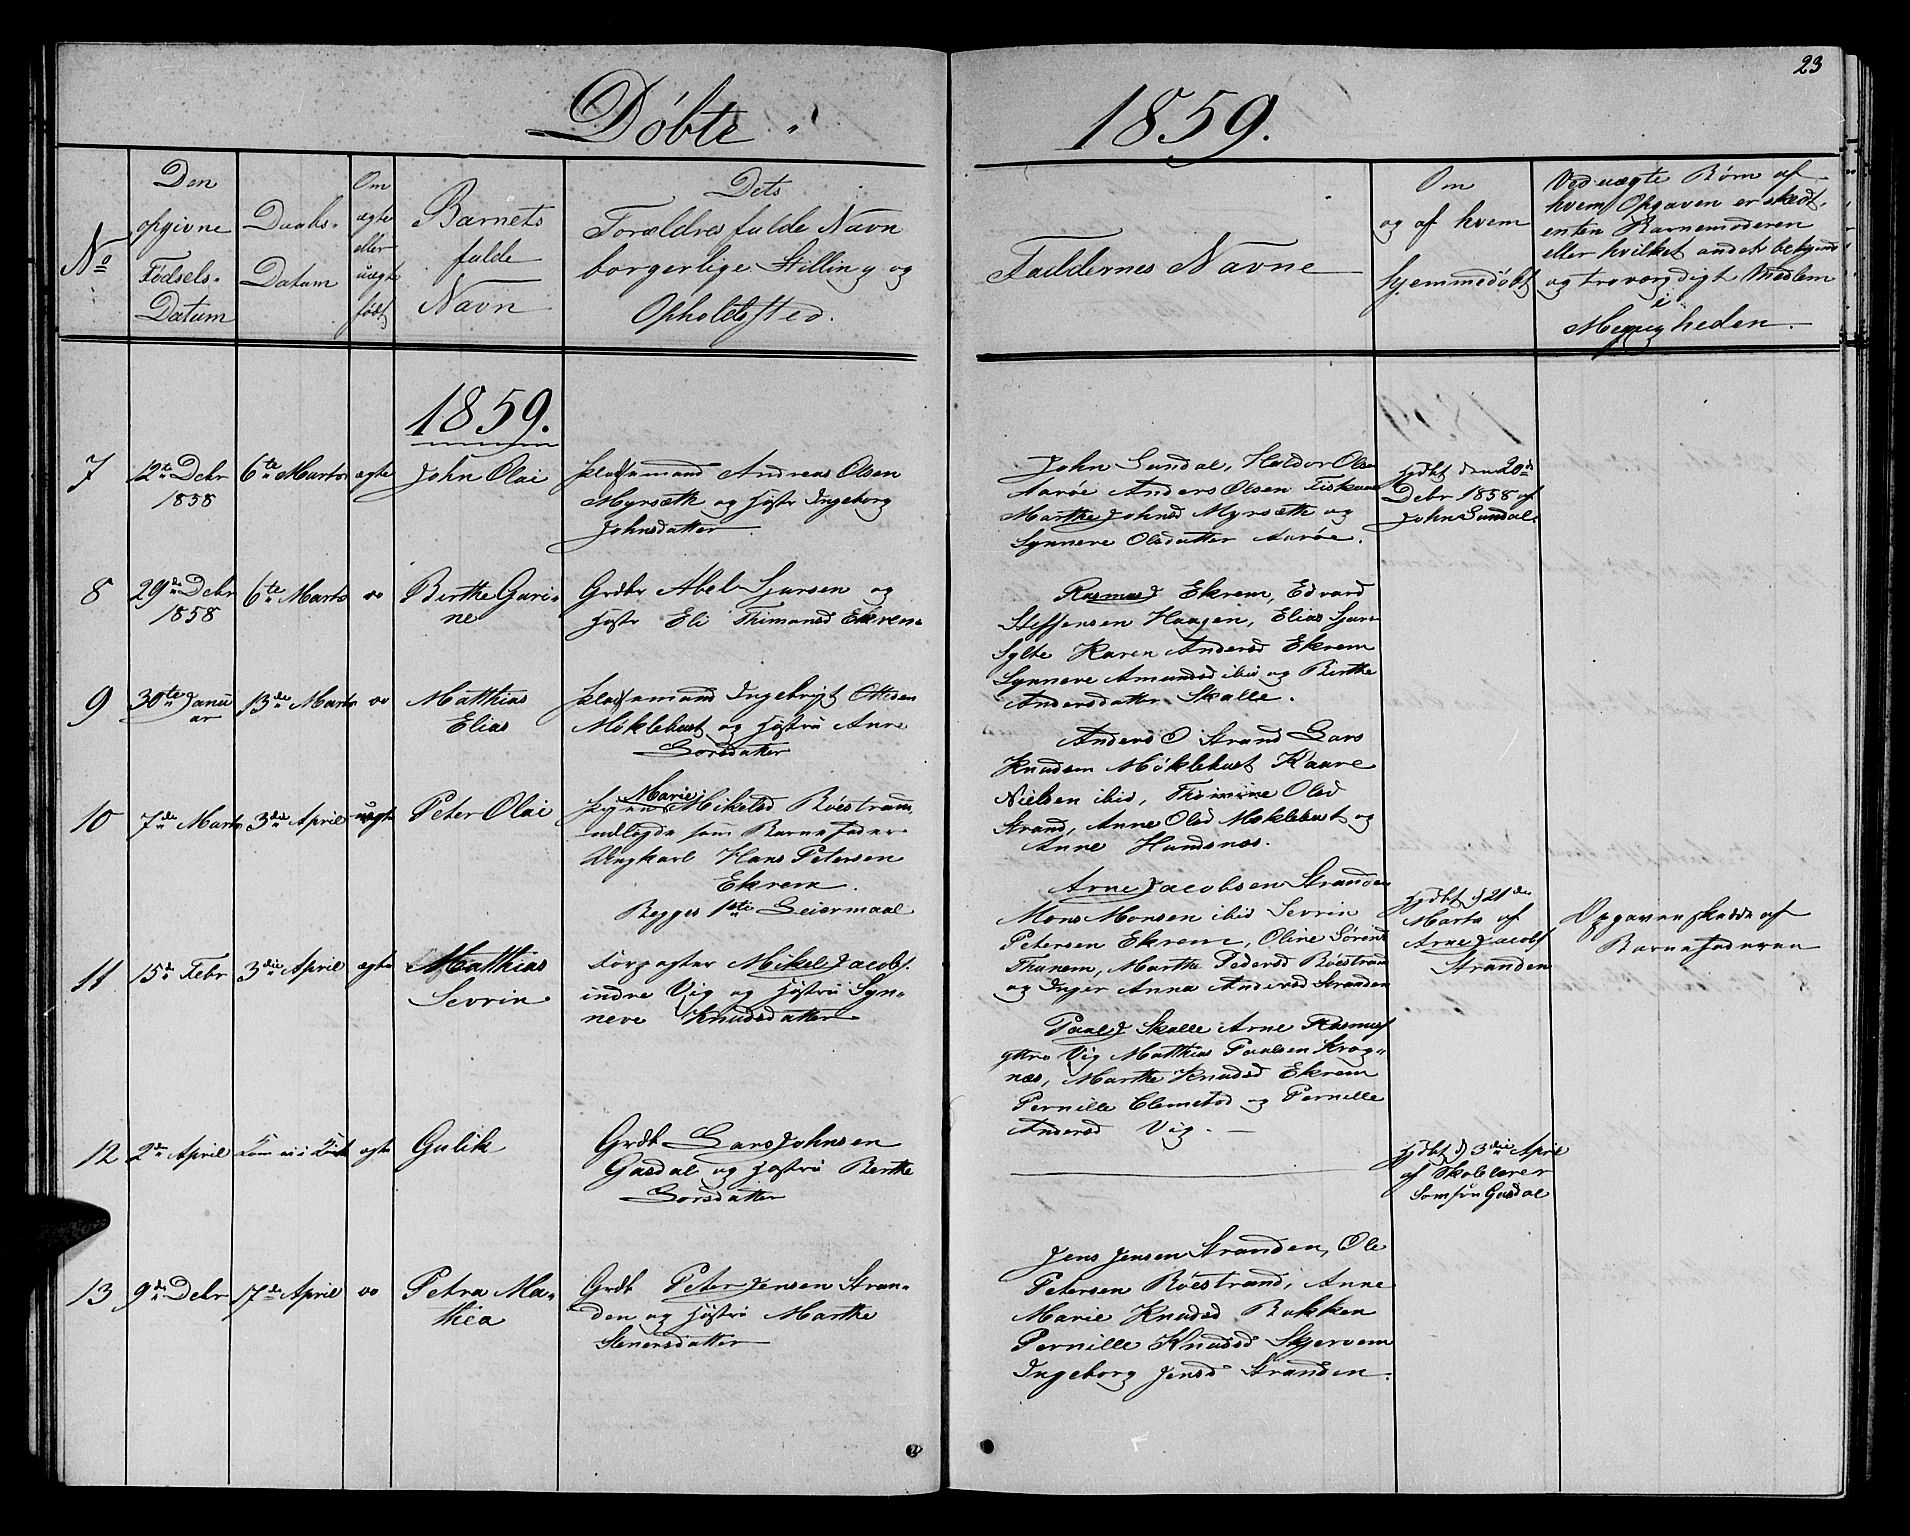 23
Døbte i 1859.
No
Den opgivne Fødsels-Datum
Daabs-Datum
Om ægte eller uægte født
Barnets fulde Navn
Dets Forældres fulde Navn borgerlige Stilling og Opholdssted.
Faddernes Navne
Om og af hvem hjemmedøbt
Ved uægte Børn af hvem Opgaven er skedt, enten Barnemoderen eller hvilket andet bekjendt og troværdigt Medlem i Menigheden.
1859.
7
12te Debr 1858
6te Marts
ægte
John Olai
Pladsemand Andreas Olsen
Myrsæth og Hustr Ingeborg
Johnsdatter
John Sundal, Haldor Olsen
Aarøe Anders Olsen Fiskaae
Marthe Johnsd Myrsæth og
Synneve Olsdatter Aarøe.
hjdbt den 20de
Debr 1858 af
John Sundal.
8
29de Debr 1858
6te Marts
"
Berthe Guri-
ne
Grdbr Abel Sjursen og
Hustr Eli Thimansd Ekrem
Rasmus J Ekrem, Edvard
Steffensen Haagen, Elias Sjurs
Sylte Karen Andersd Ekrem
Synneve Amundsd ibid og Berthe
Andersdatter Skalle.
9
30te Janu
ar
13de Marts
"
Matthias
Elias
Pladsemand Ingebrigt Ottesen
Møklebust og Hustru Anne
Larsdatter
Anders O Strand Lars
Knudsen Møklebust Kaare
Nielsen ibid, Thimine Olsd
Strand, Anne Olsd Møklebust og
Anne Hundsnæs.
10
7de Marts
3die April
uægte
Peter Olai
Pigen Marie Mikelsd Røestrand
udlagde som Barnefader
Ungkarl Hans Petersen
Ekrem.
Begges 1ste Leiermaal
Arne Jacobsen Stranden
Mons Monsen ibid Sevrin
Petersen Ekrem, Oline Sørensd
Thunem, Marthe Pedersd Røestrand
og Inger Anna Andersd Stranden
hjdbt d 21de
Marts af
Arne Jacobs
Stranden
Opgaven skedde af
Barnefaderen
11
15de Febr
3die April
ægte
Matthias
Sevrin
Forpagter Mikel Jacobs.
indre Vig og Hustru Syn-
neve Knudsdatter
Paal J Skalle Arne Rasmus
yttre Vig Matthias Paalsen Krog-
næs, Marthe Knudsd Ekrem
Pernille Clemetsd og Pernille
Andersd Vig.
12
2den April
Kom ei i Kirk
ægte
Gulik
Grdb Lars Johnsen
Gasdal og Hustru Berthe
Larsdatter
hjdbt d 3die April
af Skolelærer
Samson Gasdal
13
9de Debr
17de April
"
Petra Ma-
thea
Grdb Peter Jensen Stran-
den og Hustru Marthe
Stenersdatter
Jens Jensen Stranden, Ole
Petersen Røestrand, Anne
Marie Knudsd Bakken
Pernille Knudsd Skjervem
Ingeborg Jensd Stranden.